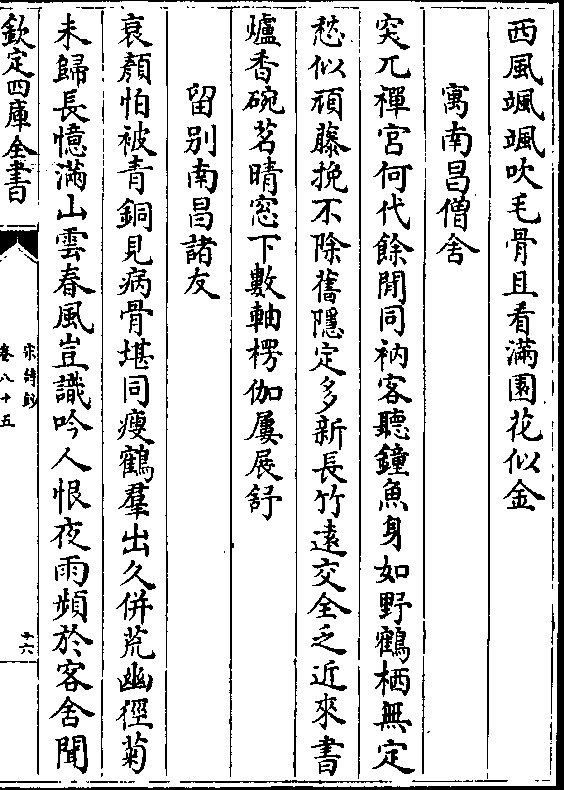 西風颯颯吹毛骨且看滿園花似金
寓南昌僧舍
突兀禪宮何代餘閒同衲客聽鐘魚身如野鶴栖無定
愁似頑藤挽不除舊隱定多新長竹遠交全乏近來書
爐香碗茗晴窓下數軸楞伽屢展舒
留别南昌諸友
衰顏怕被青銅見病骨堪同瘦鶴羣出久併荒幽徑菊
未歸長憶滿山雲春風豈識吟人恨夜雨頻於客舍聞
欽定四庫全書
宋詩鈔
卷八十五
十六